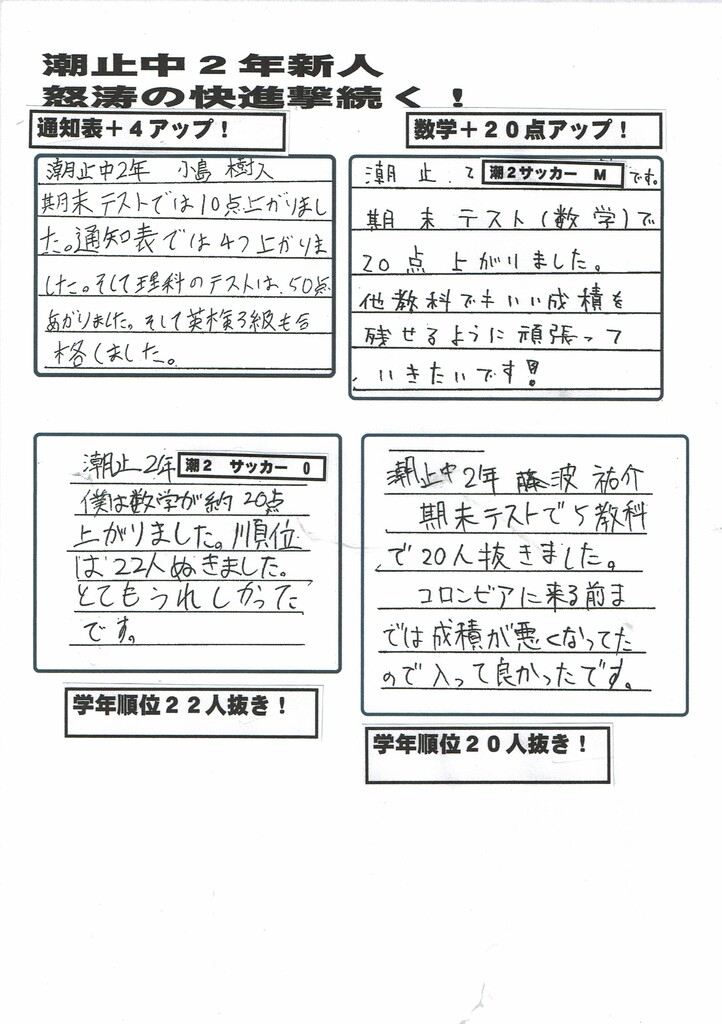 潮止中２年新人
怒涛の快進撃続く！
通知表＋４アップ！
潮止中2年 小島 樹久
期末テストでは10点上がりまし
た。通知表では4つ上がりま
した。そして理科のテストは、50点
あがりました。そして英検3級も合
格しました。
数学＋２０点アップ！
潮止
潮２サッカー Ｍ
です。
期末テスト(数学)で
20点上がりました。
他教科でもいい成積を
残せるように頑張って
いきたいです!
潮止2年
潮２ サッカー Ｏ
僕は数学が約20点
上がりました。順位
は22人ぬきました。
とてもうれしかった
です。
学年順位２２人抜き！
潮止中2年 藤波 祐介
期末テストで5教科
で20人抜きました。
コロンビアに来る前ま
では成積が悪くなってた
ので入って良かったです。
学年順位２０人抜き！